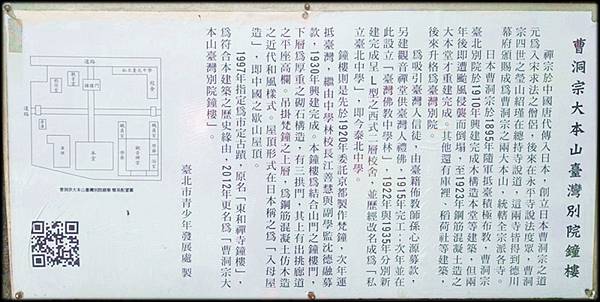 曹洞宗大本山臺灣別院鐘樓
禪宗於中國唐代傳入日本，創立日本曹洞宗之道
元為入宋求法之僧侶，後來在永平寺說法度眾，曹洞
宗四世之瑩山紹瑾在總持寺說道，這兩寺皆得到德川
幕府頒賜成為曹洞宗之兩大本山，統轄全宗派各寺。
日本曹洞宗於1895年隨軍抵臺積極布教，曹洞宗
臺北別院於1910年興建完成木構造本堂等建築，但兩
年後即遭颱風侵襲而倒塌，至1923年鋼筋混凝土造之
大本堂才重建完成。其他還有庫裡、稻荷社等建築，
後來升格為臺灣別院。
為吸引臺灣人信徒，由臺籍佛教師孫心源募款，
另建觀音禪堂供臺灣人禮佛，1915年完工；次年並在
此設立「臺灣佛教中學林」，1922年與1935年分別新
建完成呈L型之西式二層校舍，並歷經改名成為「私
立臺北中學」，即今泰北中學。
鐘樓則是先於1920年委託京都製作梵鐘，次年運
抵臺灣，繼由中學林校長江善慧與副學監沈德融募
款，1930年興建完成。本鐘樓為結合山門之鐘樓門，
下層為厚重之砌石構造，有三拱門，其上有出挑廊道
之平座高欄。吊掛梵鐘之上層，為鋼筋混凝土仿木造
之近代和風樣式。屋頂形式在日本稱之為「入母屋
造」，即中國之歇山屋頂。
1997年指定為市定古蹟，原名「東和禪寺鐘樓」，
為符合本建築之歷史緣由，2012年更名為「曹洞宗大
本山臺灣別院鐘樓」。
臺北市青少年發展處 製
道路
道路
鐘樓門
本堂
曹洞宗大本山臺灣別院鐘樓 舊有配置圖